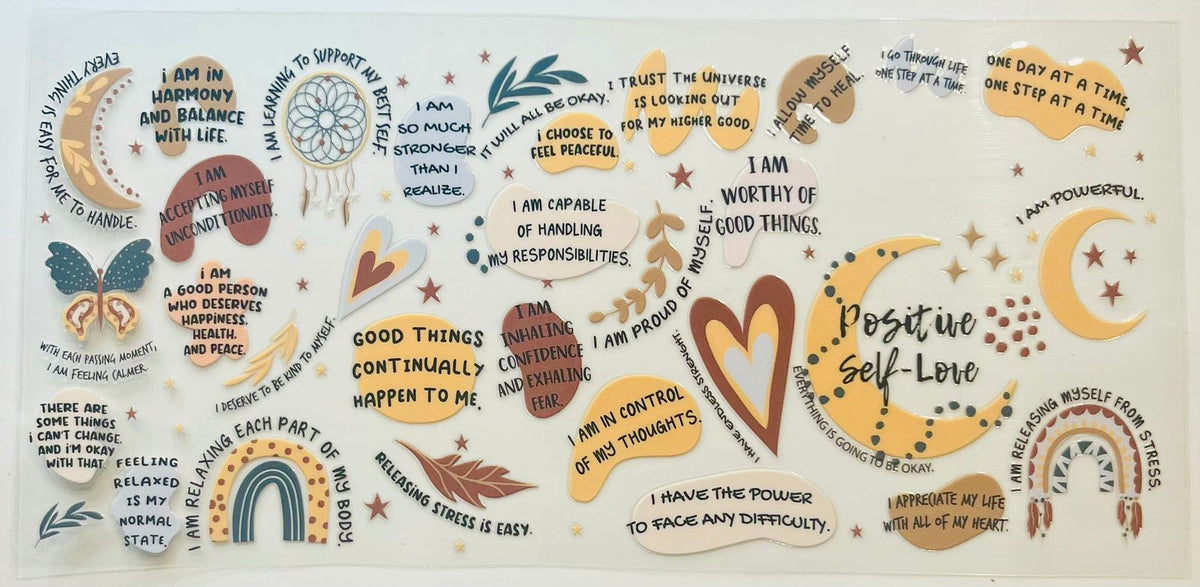 EVERYTHING IS EASY FOR ME TO HANDLE.
i AM IN
HARMONY
AND BALANCE
WiTH LiFE.
I AM LEARNING TO SUPPORT MY BEST SELF.
I AM
SO MUCH
STRONGER
THAN I
REALIZE.
IT WILL ALL BE OKAY.
i CHOOSE TO
FEEL PEACEFUL.
I TRUST THE UNIVERSE
IS LOOKING OUT
FOR MY HIGHER GOOD.
I ALLOW MYSELF
TIME TO HEAL.
I GO THROUGH LIFE
ONE STEP AT A TIME.
ONE DAY AT A TIME,
ONE STEP AT A TIME
I AM
ACCEPTING MYSELF
UNCONDITIONALLY.
I AM CAPABLE
OF HANDLING
MY RESPONSIBILITIES.
I AM
WORTHY OF
GOOD THINGS.
I AM POWERFUL.
WITH EACH PASSING MOMENT,
I AM FEELING CALMER.
i AM
A GOOD PERSON
WHO DESERVES
HAPPINESS,
HEALTH,
AND PEACE.
I DESERVE TO BE KIND TO MYSELF.
GOOD THINGS
CONTINUALLY
HAPPEN TO ME.
I AM
INHALING
CONFIDENCE
AND EXHALING
FEAR.
I AM PROUD OF MYSELF.
I HAVE ENDLESS STRENGHT.
Positive
Self-Love
EVERYTHING IS GOING TO BE OKAY.
THERE ARE
SOME THINGS
i CAN'T CHANGE,
AND i'M OKAY
WITH THAT.
FEELING
RELAXED
IS MY
NORMAL
STATE.
I AM RELAXING EACH PART OF MY BODY.
RELEASING STRESS iS EASY.
I AM IN CONTROL
OF MY THOUGHTS.
I HAVE THE POWER
TO FACE ANY DIFFICULTY.
I APPRECIATE MY LIFE
WITH ALL OF MY HEART.
I AM RELEASING MYSELF FROM STRESS.